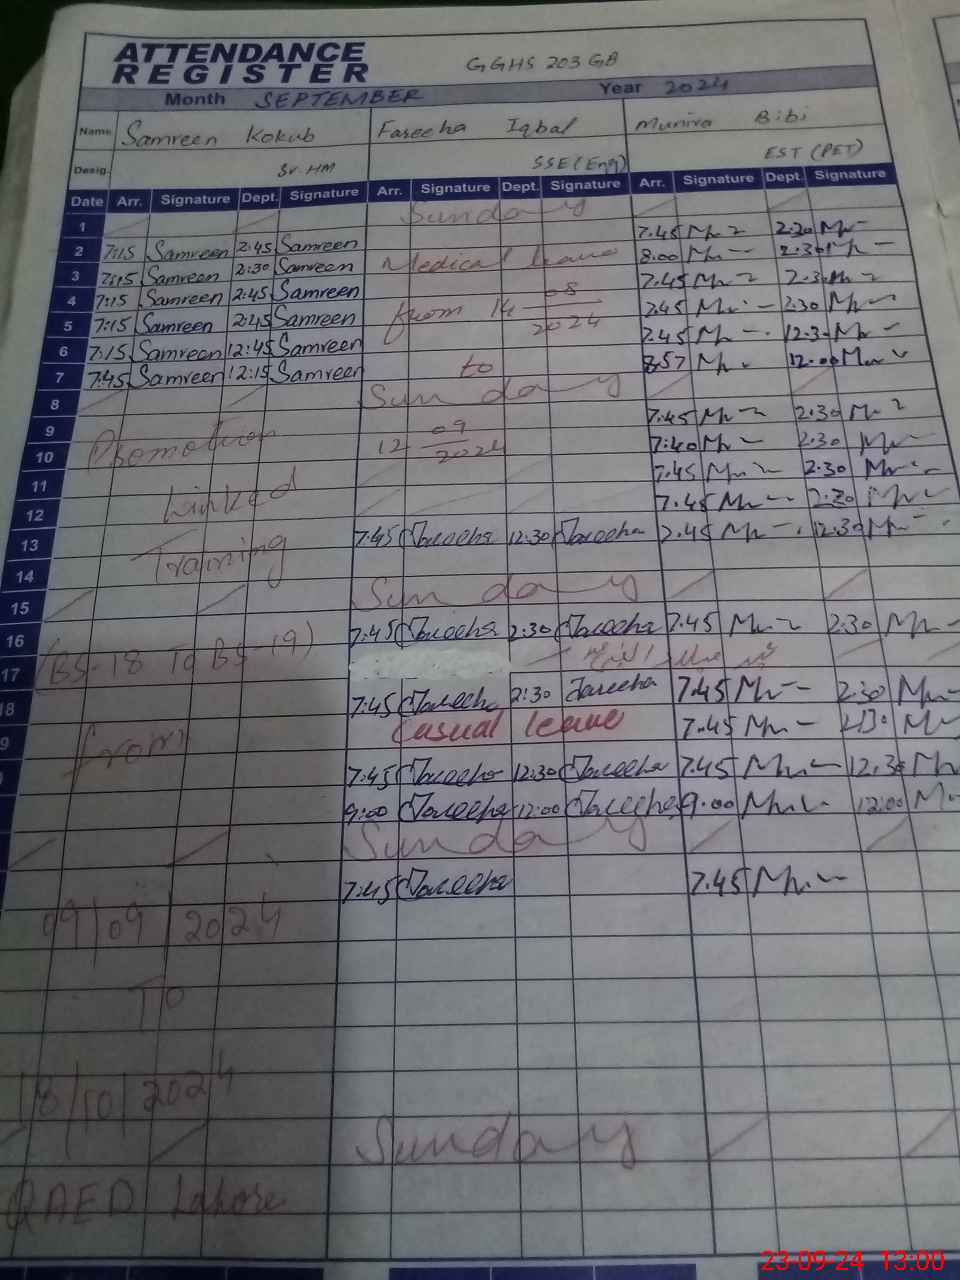 ATTENDANCE
REGISTER
GGHS 203 GB
Month SEPTEMBER Year 2024
Name Samreen Kokub Fareeha Iqbal Munira Bibi
Desig. Sr. HM SSE (Eng) EST (PET)
Date Arr. Signature Dept. Signature Arr. Signature Dept. Signature Arr. Signature Dept. Signature
1 Sunday
2 7:15 Samreen 2:45 Samreen 7.45 2.30
3 7:15 Samreen 2:30 Samreen Medical leave 8.00 2.30
4 7:15 Samreen 2:45 Samreen 7.45 2.30
5 7:15 Samreen 2:45 Samreen from 14 08 2024 7.45 2.30
6 7:15 Samreen 12:45 Samreen 7.45 12.30
7 7:45 Samreen 12:15 Samreen to 8.57 12.00
8 Sunday
9 Promotion 12 09 2024 7.45 2.30
10 7.40 2.30
11 Linked 7.45 2.30
12 7.45 2.30
13 Training 7:45 Fareeha 12:30 Fareeha 7.45 12.30
14
15 Sunday
16 (BS-18 To BS-19) 7:45 Fareeha 2:30 Fareeha 7.45 2.30
17
18 7:45 Fareeha 2:30 Fareeha 7.45 2.30
9 from Casual leave 7.45 2.30
7:45 Fareeha 12:30 Fareeha 7.45 12.30
9:00 Fareeha 12:00 Fareeha 9.00 12.00
Sunday
7:45 Fareeha 7.45
09/09/2024
To
18/10/2024
Sunday
QAED Lahore
23-09-24 13:00